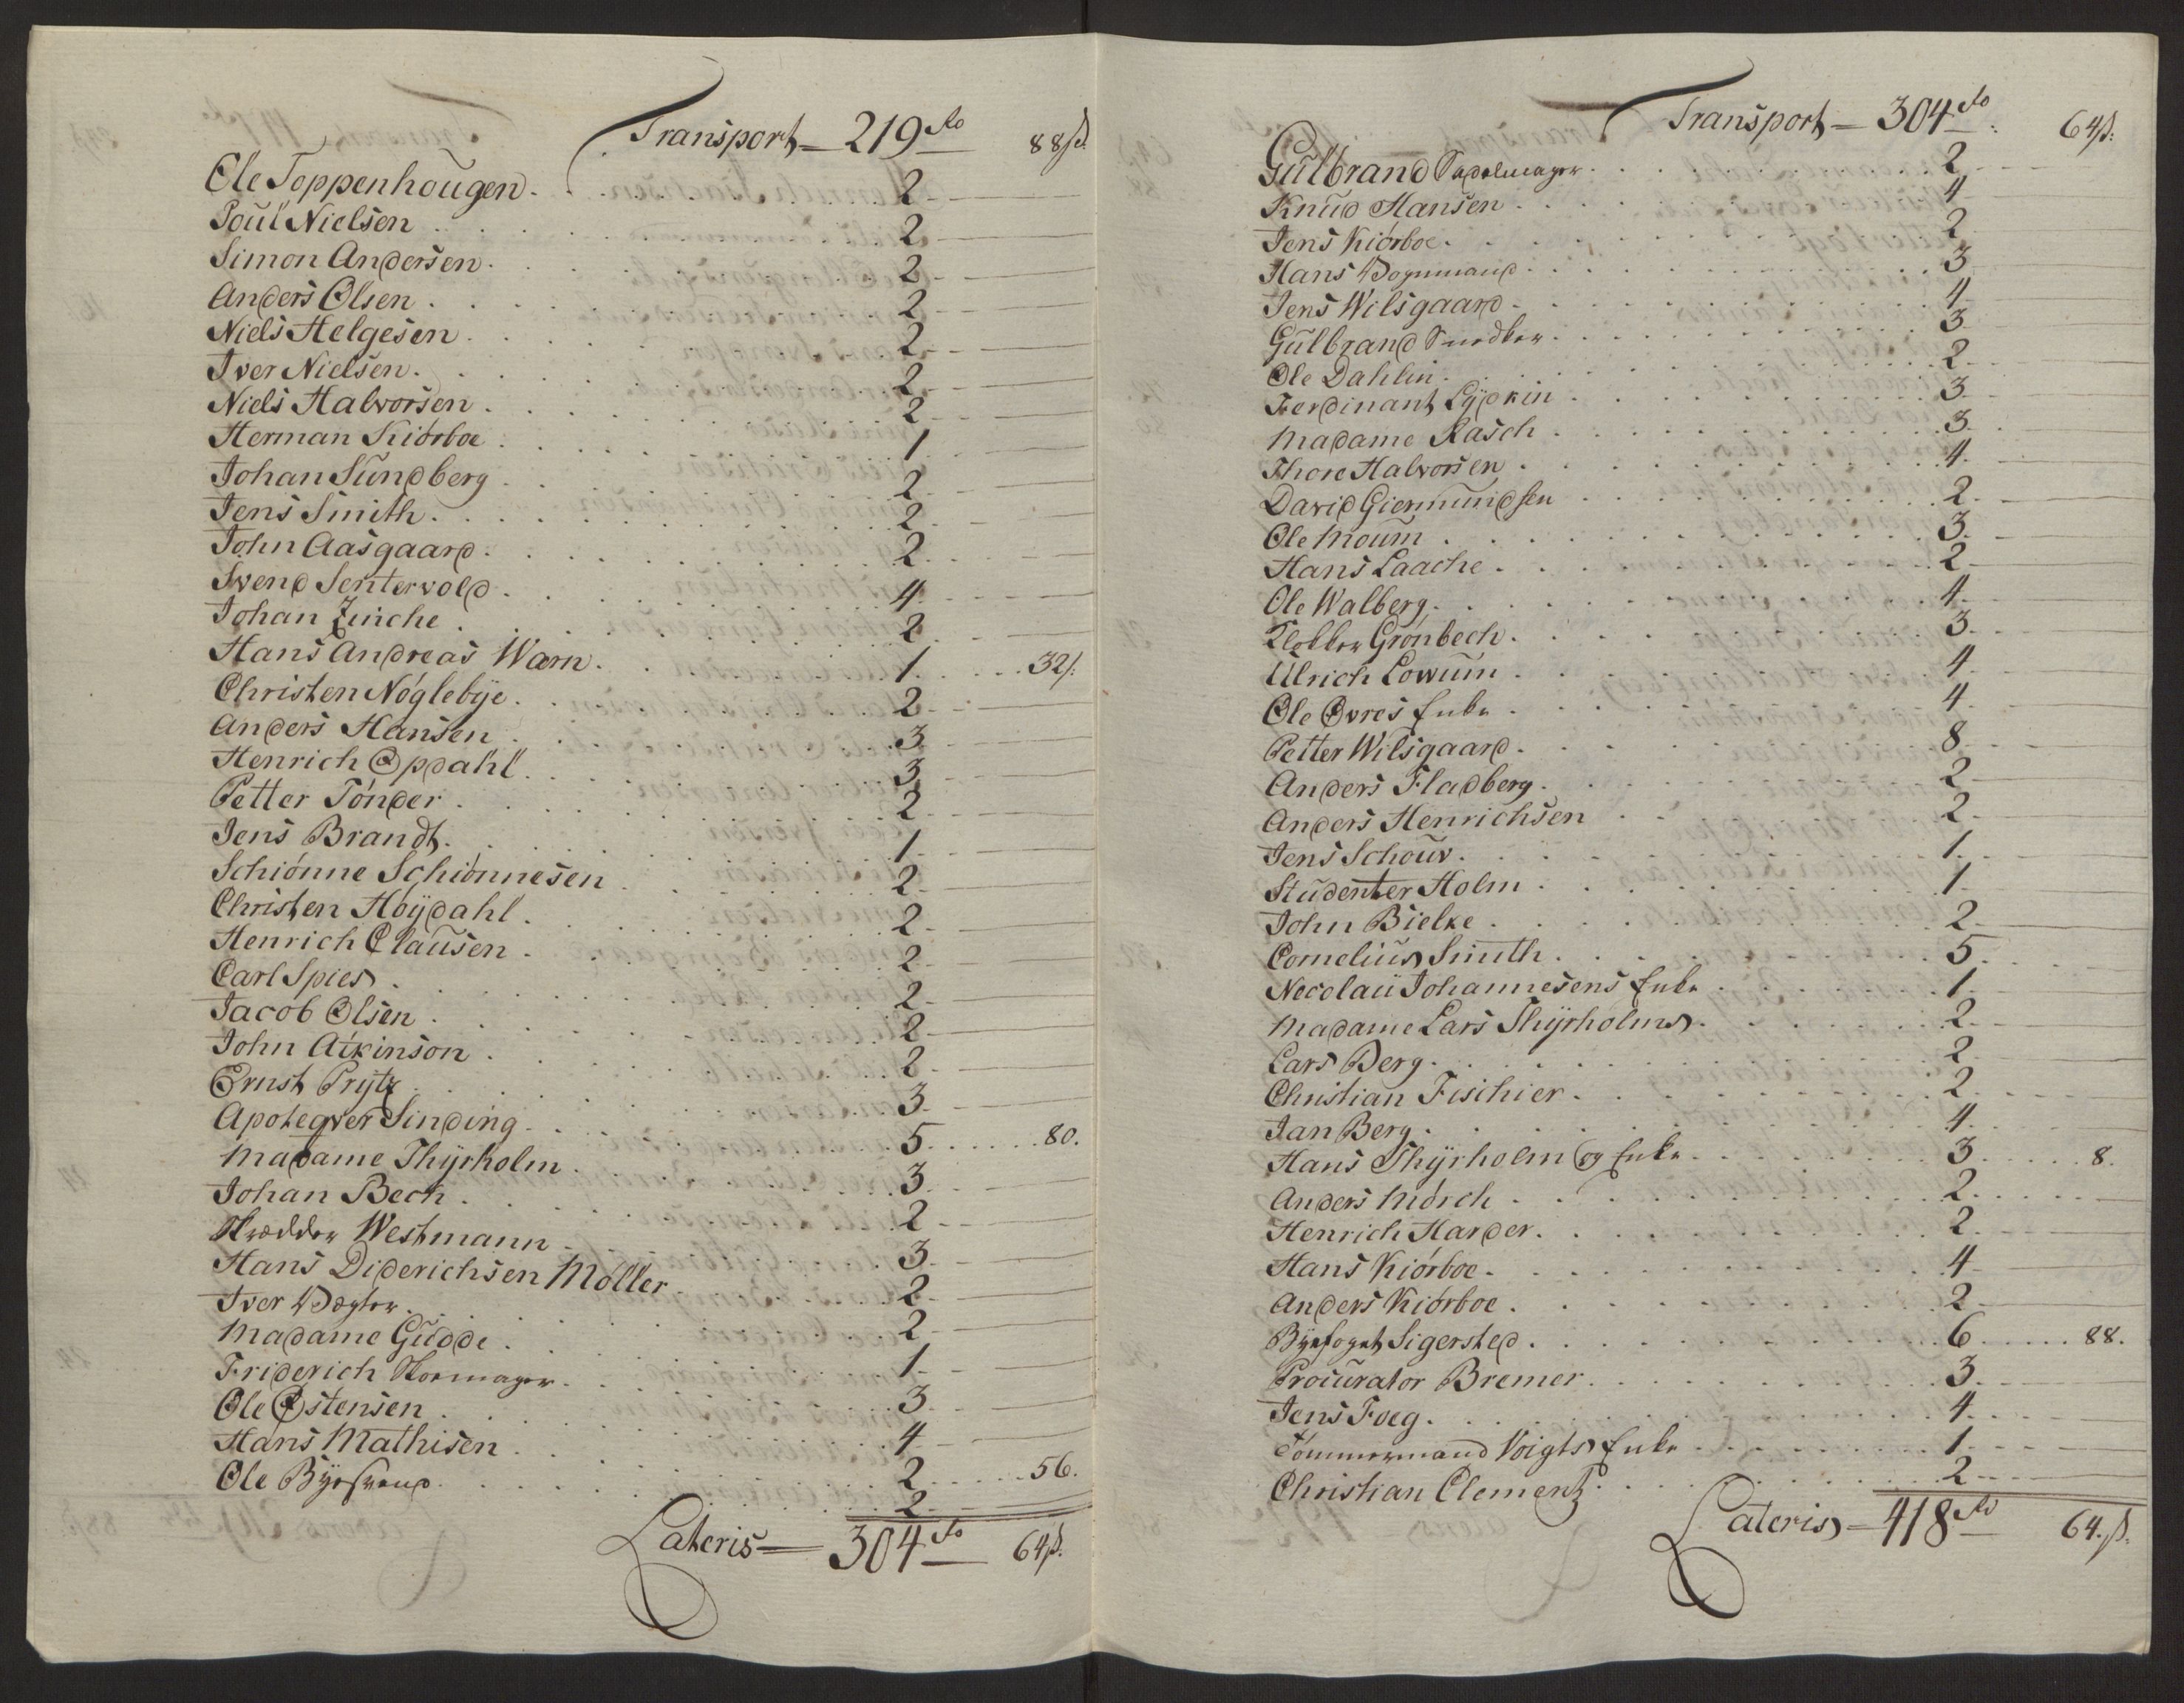 Transport — 219 rdr 88 ß.
Ole Toppenhougen . . . 2
Poul Nielsen . . . 2
Simon Andersen . . . 2
Anders Olsen . . . 2
Niels Helgesen . . . 2
Iver Nielsen . . . 2
Niels Halvorsen . . . 2
Herman Kiørboe . . . 1
Johan Sundberg . . . 2
Jens Smith . . . 2
John Aasgaard . . . 2
Svend Sentervold . . . 4
Johan Zinche . . . 2
Hans Andreas Warn . . . 1 . . . 32 ß:
Christen Nøglebye . . . 2
Anders Hansen . . . 3
Henrich Opdahl . . . 3
Petter Tønder . . . 2
Jens Brandt . . . 1
Schiønne Schiønnesen . . . 2
Christen Høydahl . . . 2
Henrich Clausen . . . 2
Carl Spies . . . 2
Jacob Olsen . . . 2
John Atkinson . . . 2
Ernst Prytz . . . 3
Apoteqver Sinding . . . 5 . . . 80.
Madame Thyrholm . . . 3
Johan Bech . . . 2
Skrædder Westmann . . . 3
Hans Diderichsen Møller . . . 2
Iver Vægter . . . 2
Madame Gudde . . . 1
Friderich Skoemager . . . 3
Ole Østensen . . . 4
Hans Mathisen . . . 2 . . . 56.
Ole Byesvend . . . 2
Lateris — 304 rdr 64 ß.
Transport — 304 rdr 64 ß:
Gulbrand Sadelmager . . . 2
Knud Hansen . . . 4
Jens Kiørboe . . . 2
Hans Vognmand . . . 3
Jens Wilsgaard . . . 4
Gulbrand Snedker . . . 3
Ole Dahlin . . . 2
Ferdinant Lydkin . . . 3
Madame Rasch . . . 3
Thore Halvorsen . . . 4
David Giermundsen . . . 2
Ole Moum . . . 3
Hans Laache . . . 2
Ole Walberg . . . 4
Klokker Grønbech . . . 3
Ulrich Lowum . . . 4
Ole Ovres Enke . . . 4
Petter Wilsgaard . . . 8
Anders Fladberg . . . 2
Anders Henrichsen . . . 2
Jens Schouv . . . 1
Studenter Holm . . . 1
John Bielke . . . 2
Cornelius Smith . . . 5
Necolai Johannesens Enke . . . 1
Madame Lars Thyrholms . . . 2
Lars Berg . . . 2
Christian Fischier . . . 2
Jan Berg . . . 4
Hans Thyrholm og Enke . . . 3 . . . 8.
Anders Mørch . . . 2
Henrich Harder . . . 2
Hans Kiørboe . . . 4
Anders Kiørboe . . . 2
Byefoget Sigersted . . . 6 . . . 88.
Procurator Bremer . . . 3
Jens Foeg . . . 4
Tømmermand Voigts Enke . . . 1
Christian Clementz . . . 2
Lateris — 418 rdr 64. ß.